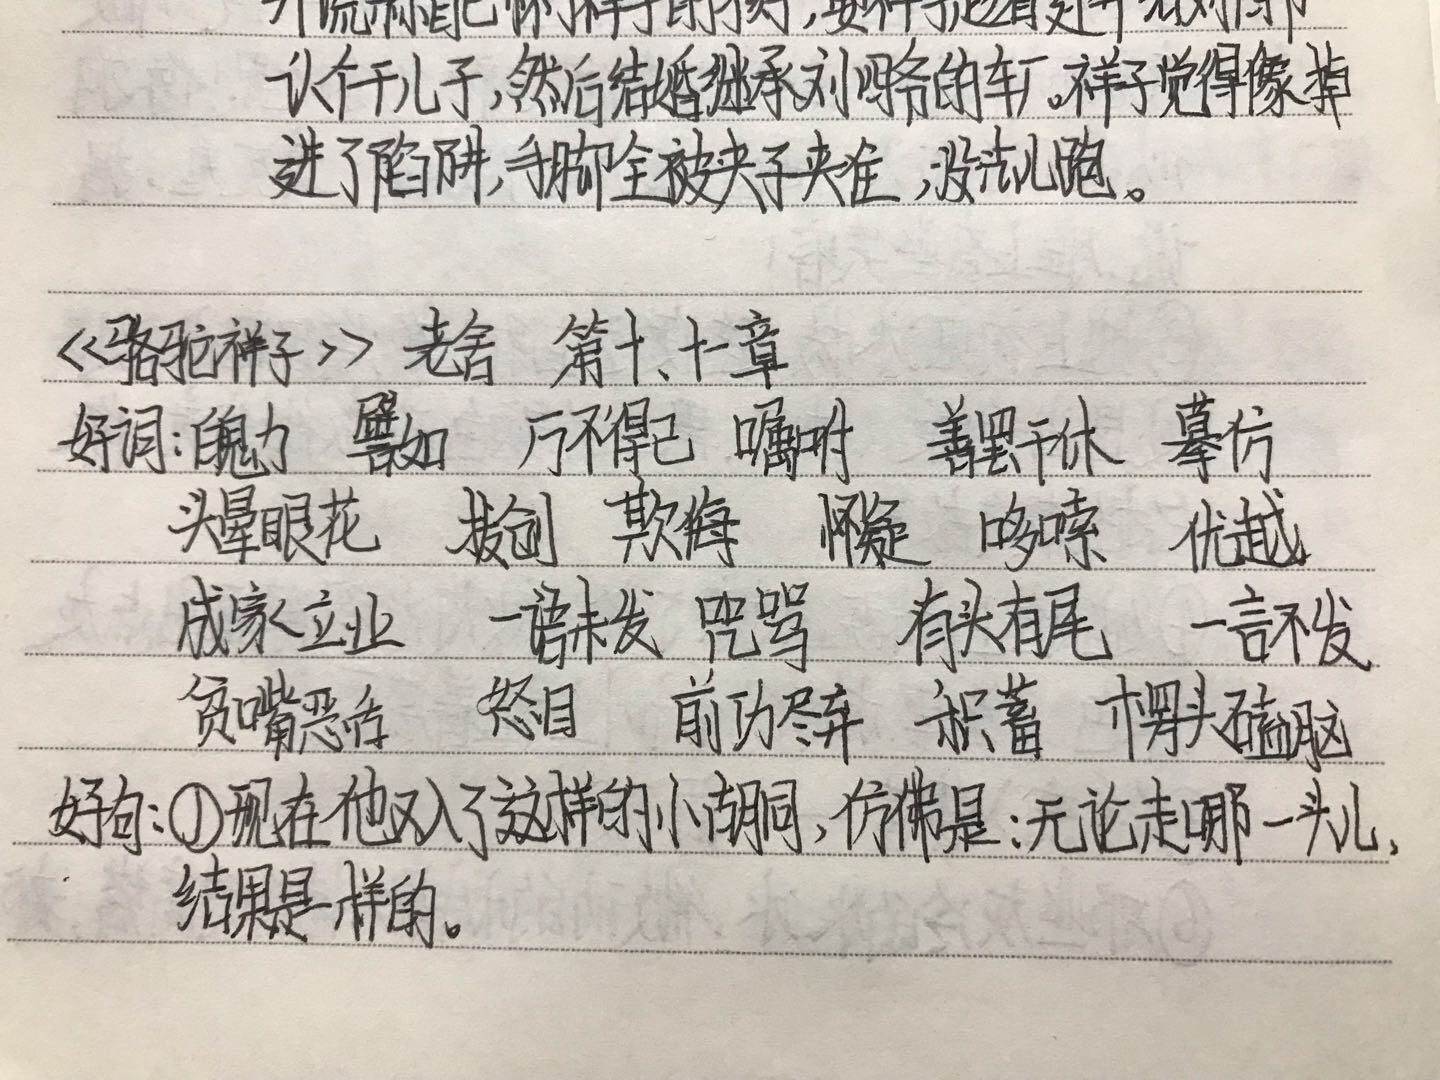 认个干儿子，然后结婚继承刘四爷的车厂。祥子觉得像掉
进了陷阱，手脚全被夹子夹住，没法儿跑。
《骆驼祥子》 老舍 第十、十一章
好词：魄力 譬如 万不得已 嘱咐 善罢干休 摹仿
头晕眼花 拔创 欺侮 怀疑 哆嗦 优越
成家立业 一语未发 咒骂 有头有尾 一言不发
贫嘴恶舌 怒目 前功尽弃 积蓄 楞头磕脑
好句：①现在他又入了这样的小胡同，仿佛是：无论走哪一头儿，
结果是一样的。